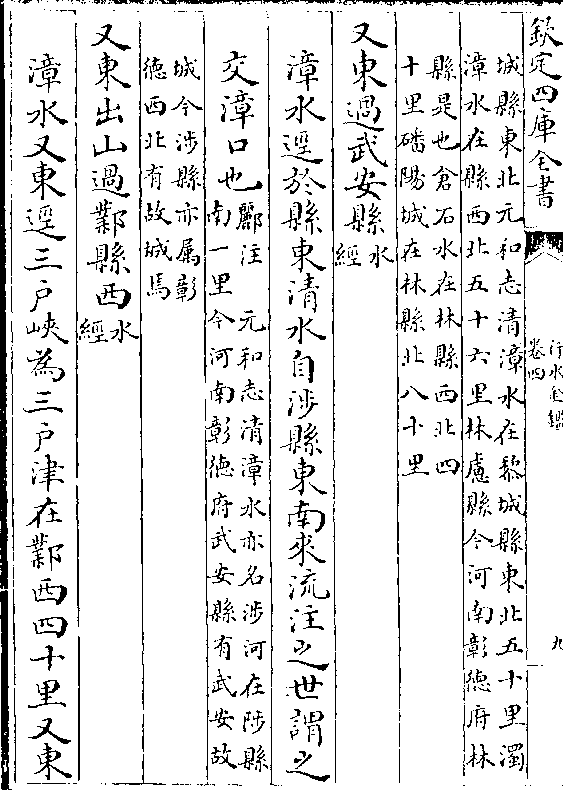 欽定四庫全書
行水金鑑
卷四
九
城縣東北元和志清漳水在黎城縣東北五十里濁
漳水在縣西北五十六里林慮縣今河南彰德府林
縣是也倉石水在林縣西北四
十里磻陽城在林縣北八十里
又東過武安縣水
經
漳水逕於縣東清水自涉縣東南來流注之世謂之
交漳口也酈注 元和志清漳水亦名涉河在陟縣
南一里今河南彰德府武安縣有武安故
城今涉縣亦屬彰
德西北有故城焉
又東出山過鄴縣西水
經
漳水又東逕三戶峽為三戶津在鄴西四十里又東